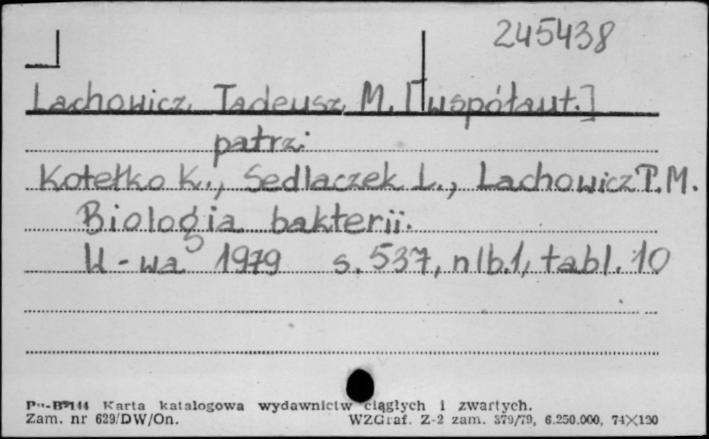 245438
Lachowicz Tadeusz M. [współaut.]
patrz:
Kotełko K., Sedlaczek L., Lachowicz T.M.
Biologia bakterii.
W-wa 1979 s. 537, nlb.1, tabl. 10
Pu-B-144 Karta katalogowa wydawnictw ciągłych i zwartych.
Zam. nr 629/DW/On. WZGraf. Z-2 zam. 379/79, 6.250.000, 74×120